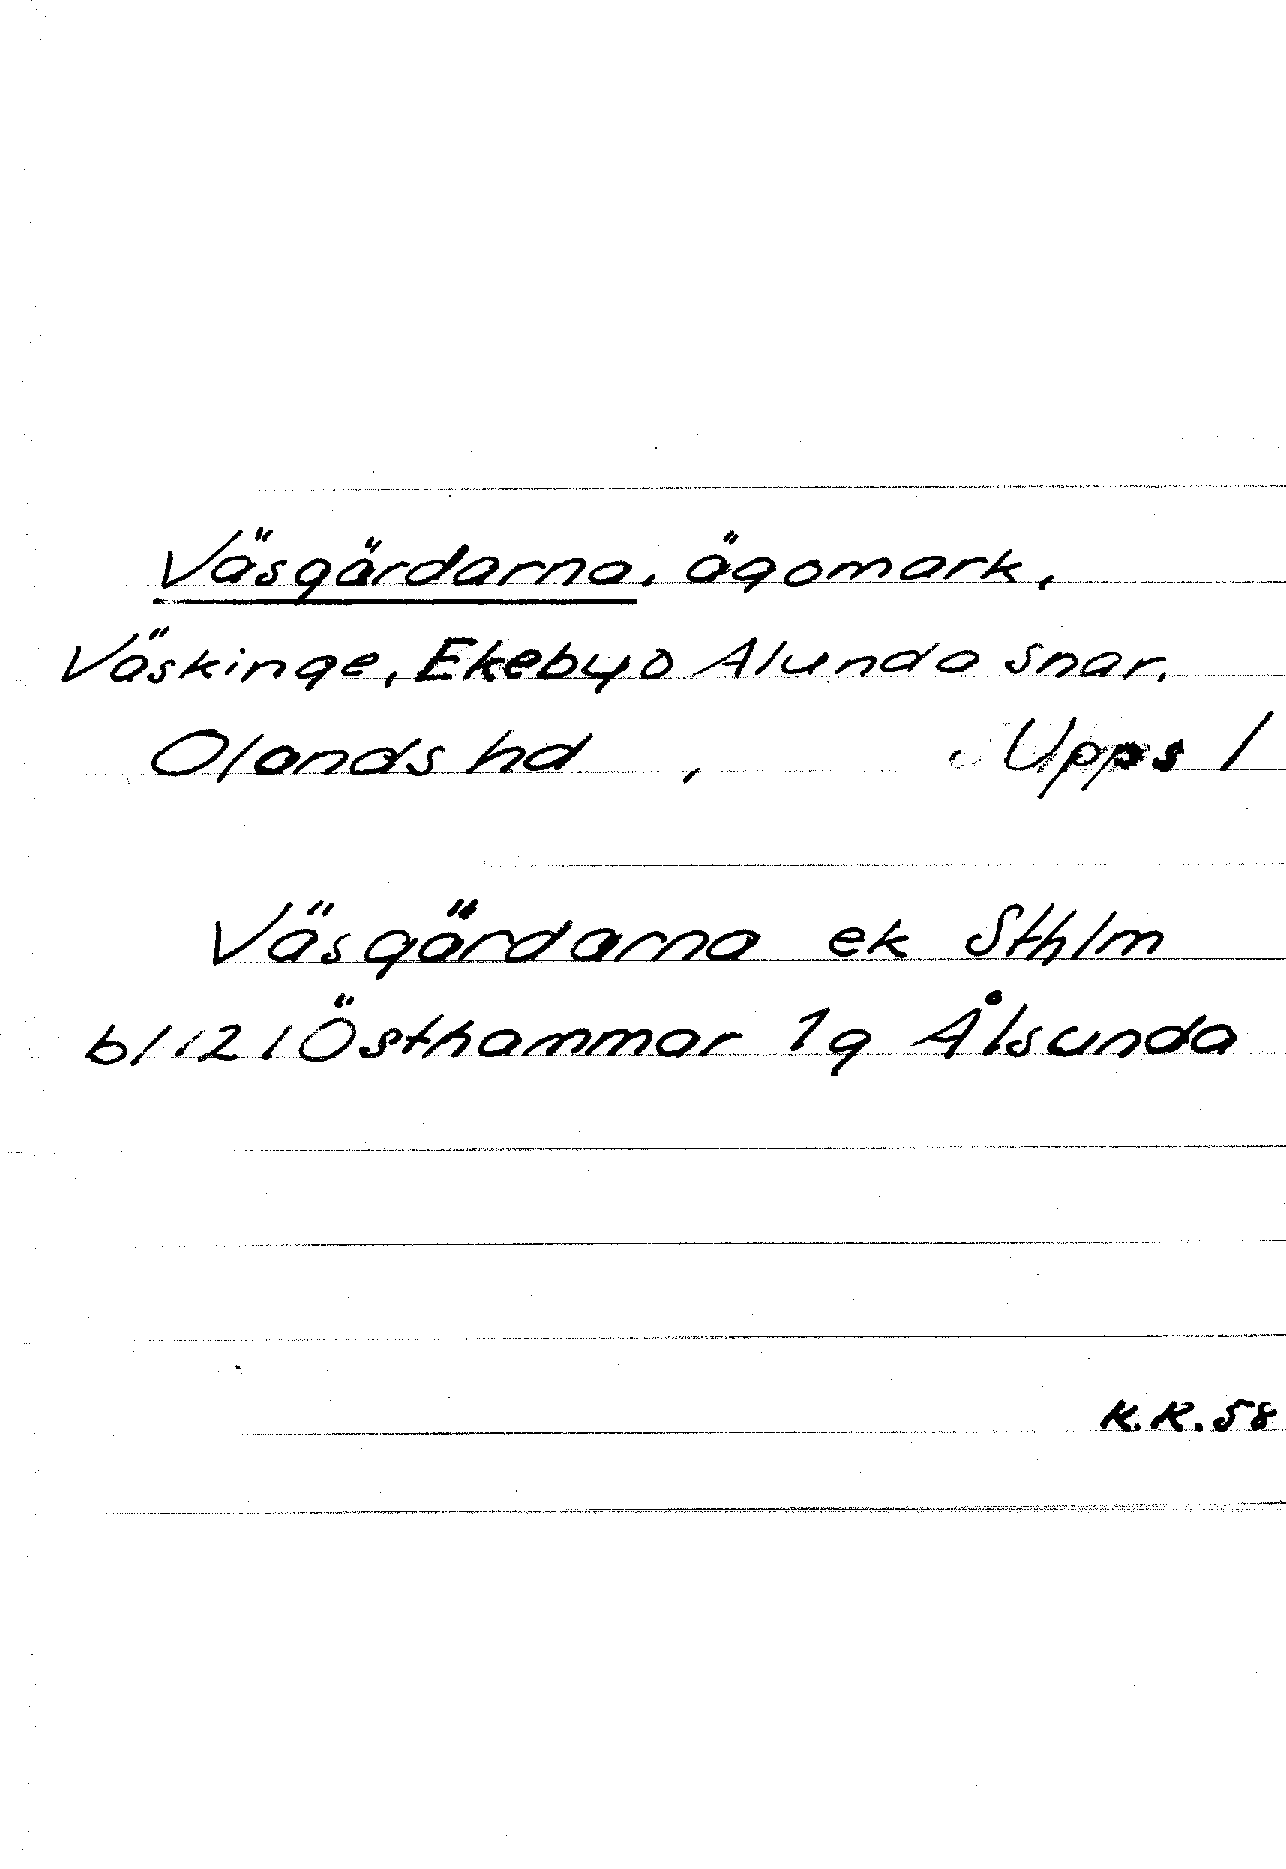 Väsgärdarna, ägomark,
Väskinge, Ekeby o Alunda snar,
Olands hd , Upps l
Väsgärdarna ek Sthlm
bl 121 Östhammar 1g Ålsunda
K.R. 58